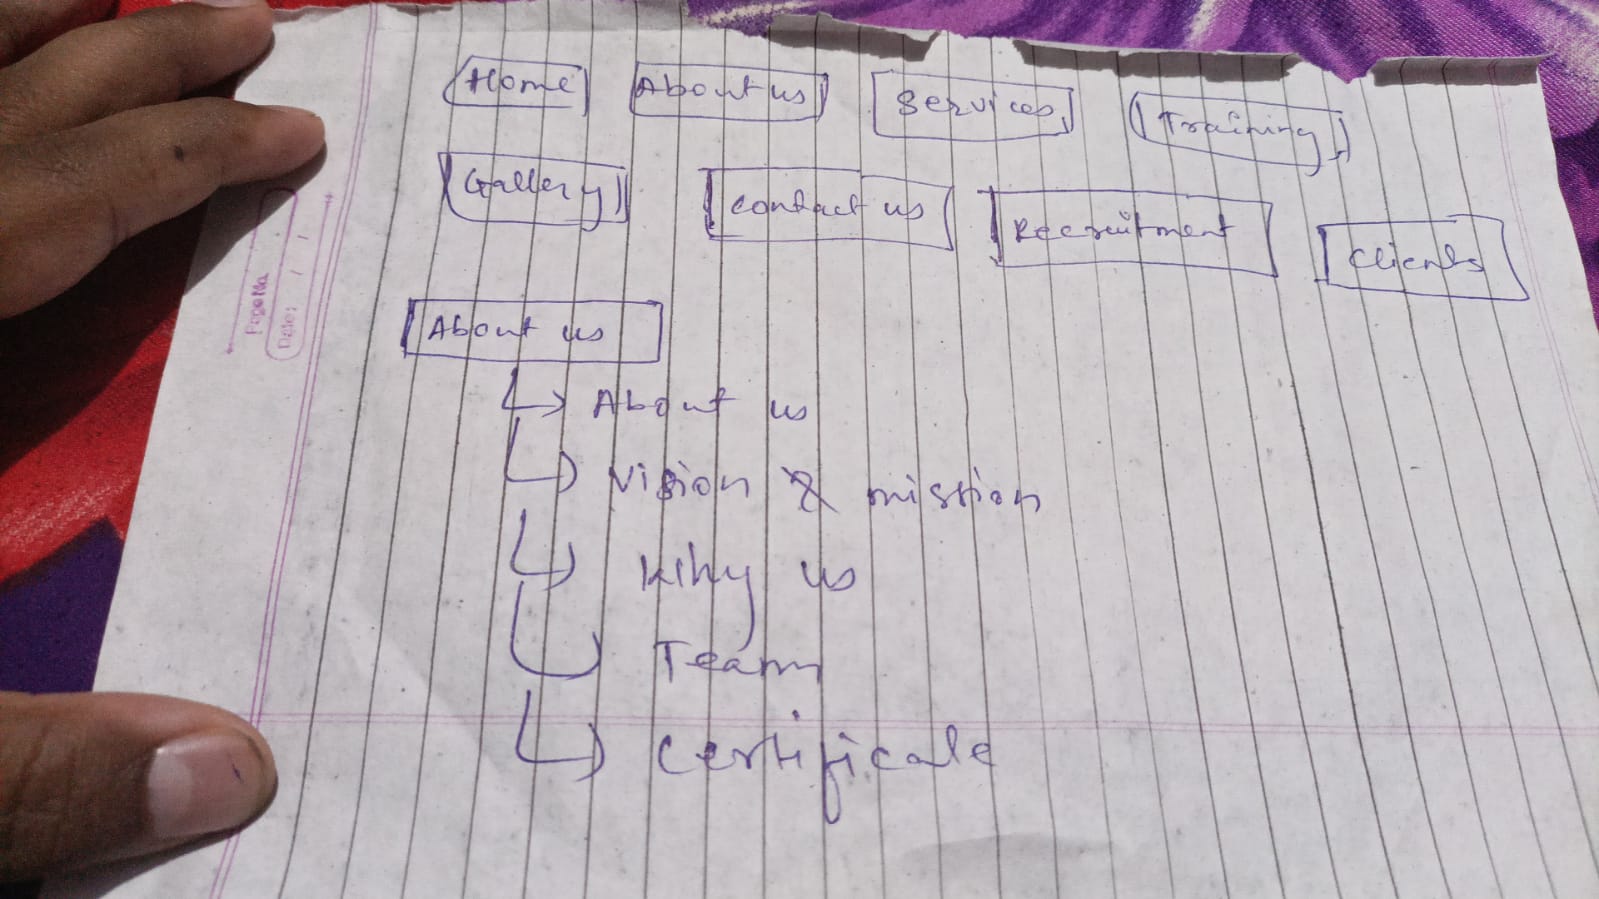 Home About us Services Training
Gallery Contact us Recruitment Clients
About us
About us
Vision & mission
Why us
Team
Certificate
Page No.
Date: / /